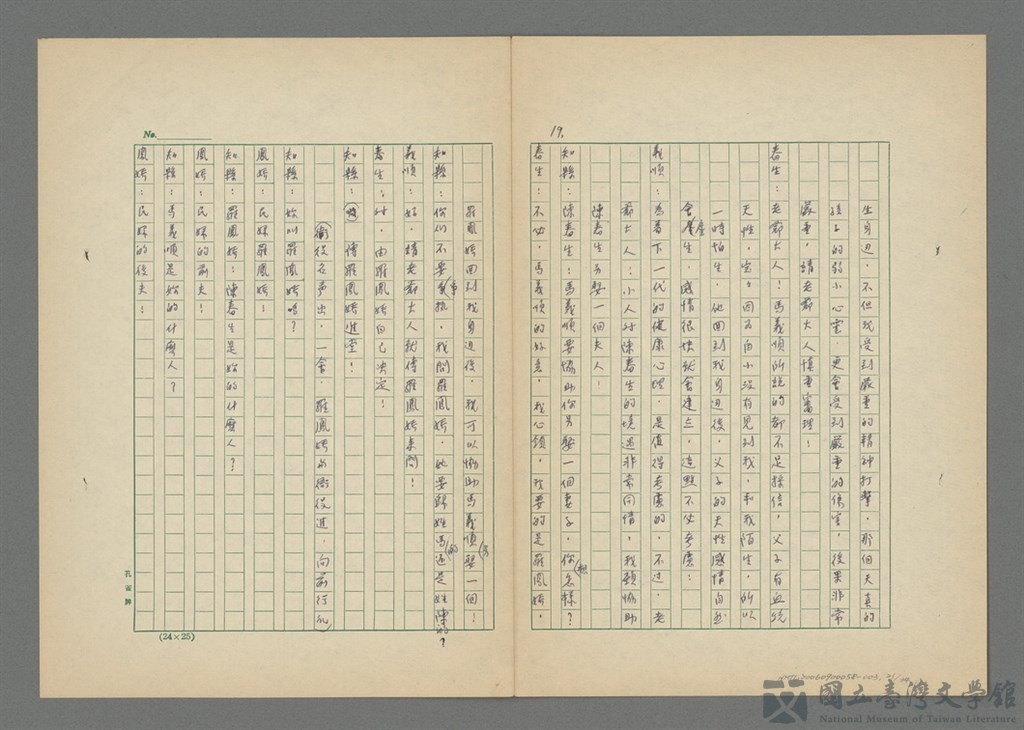 19.
生身边，不但我受到嚴重的精神打擊，那個天真的
孩子的弱小心靈，更會受到嚴重的傷害，後果非常
嚴重，請老爺大人慎重審理！
春生：老爺大人！馬義順所說的都不足採信，父子有血統
天性，宝々因為自小沒有見到我，和我陌生，所以
一時怕生，他回到我身边後，父子的天性感情自然
會產生，感情很快就會建立，這點不必考慮；
義順：為着下一代的健康心理，是值得考慮的，不过，老
爺大人：小人对陳春生的境遇非常同情，我願協助
陳春生另娶一個夫人！
知縣：陳春生：馬義順要協助你另娶一個妻子，你怎樣？
春生：不必，馬義順的好意，我心領，我要的是羅鳳娇，
No.
羅鳳娇回到我身边後，我可以協助馬義順另娶一個！
知縣：你们不要爭執，我問羅鳳娇，她要歸姓馬的还是姓陳的？
義順：好，請老爺大人就傳羅鳳娇來問！
春生：对，由羅鳳娇自己決定！
知縣：傳羅鳳娇進堂！
衙役應声出，一會，羅鳳娇由衙役進，向前行礼
知縣：妳叫羅鳳娇嗎？
鳳娇：民婦羅鳳娇！
知縣：羅鳳娇：陳春生是妳的什麼人？
鳳娇：民婦的前夫！
知縣：馬義順是妳的什麼人？
鳳娇：民婦的後夫！
(24×25)
孔雀牌
國立臺灣文學館
National Museum of Taiwan Literature